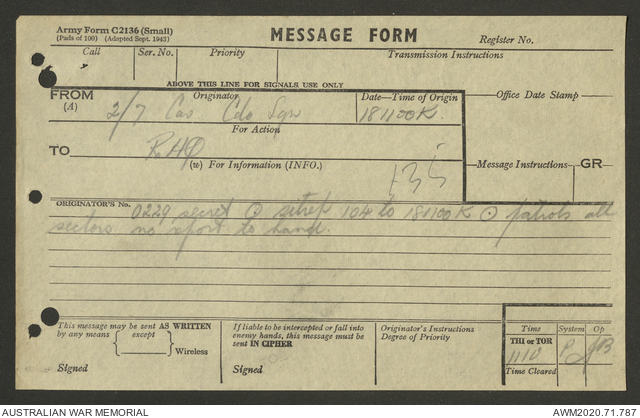 Army Form C2136 (Small)
(Pads of 100) (Adapted Sept. 1943)
MESSAGE FORM
Register No.
Call Ser. No. Priority Transmission Instructions
ABOVE THIS LINE FOR SIGNALS USE ONLY
FROM Originator Date—Time of Origin Office Date Stamp
(A) 2/7 Cav C'do Sqn 181100K
For Action
TO RHQ
(w) For Information (INFO.) Message Instructions GR
135
ORIGINATOR'S No. 0229 secret ⊙ sitrep 104 to 181100K ⊙ patrols all
sectors no report to hand.
This message may be sent AS WRITTEN
by any means except
Wireless
Signed
If liable to be intercepted or fall into
enemy hands, this message must be
sent IN CIPHER
Signed
Originator's Instructions
Degree of Priority
Time System Op
THI or TOR
1110 P
Time Cleared
AUSTRALIAN WAR MEMORIAL AWM2020.71.787